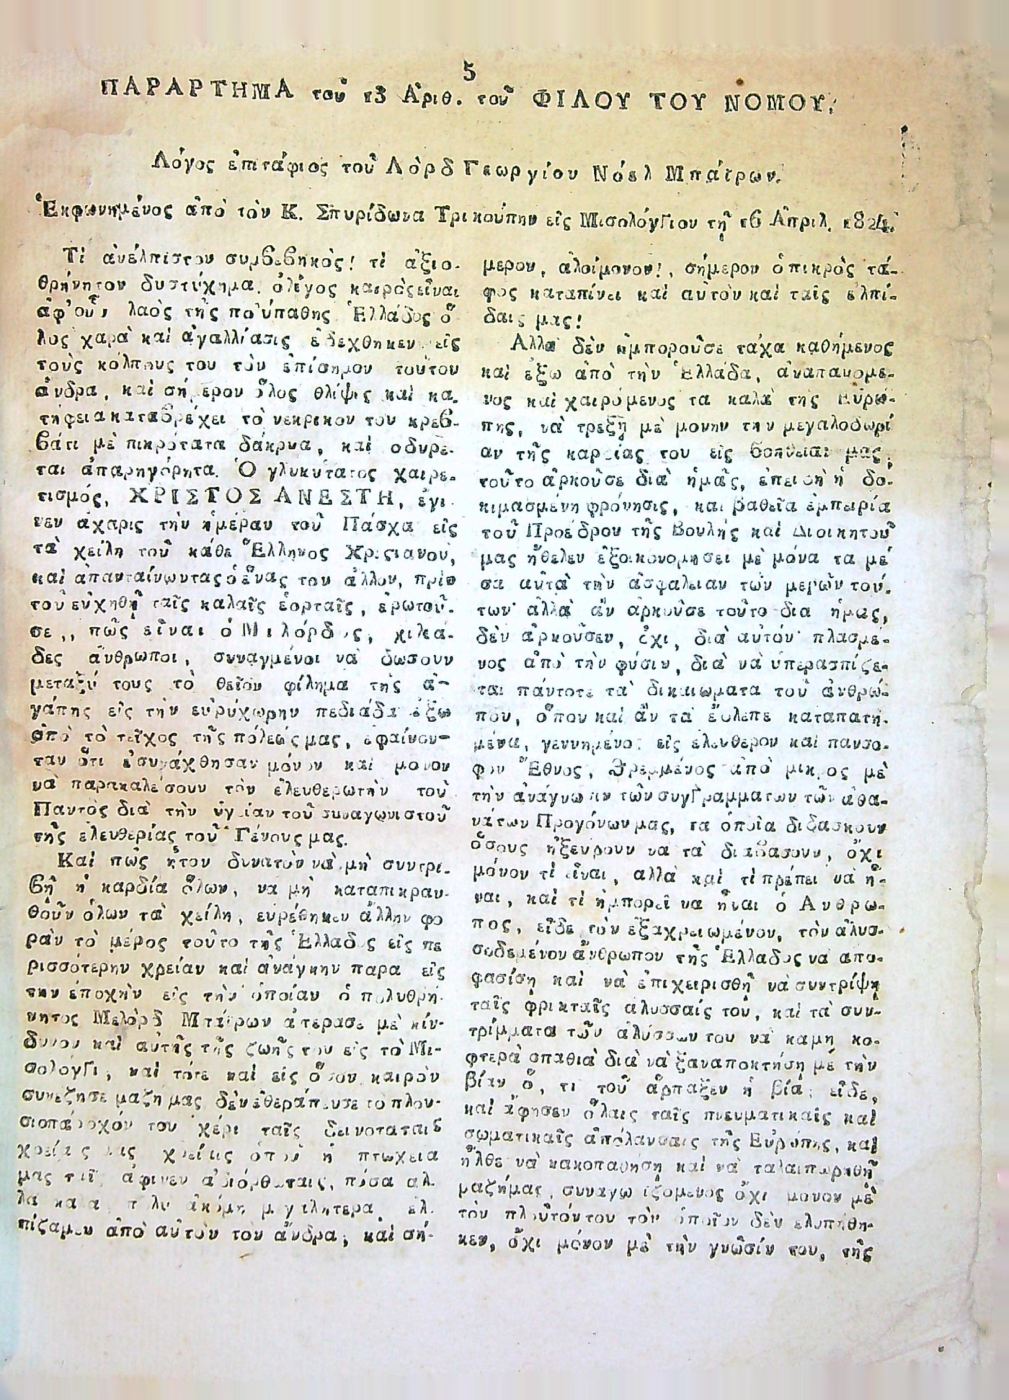 5
ΠΑΡΑΡΤΗΜΑ τοῦ 13 Ἀριθ. τοῦ ΦΙΛΟΥ ΤΟΥ ΝΟΜΟΥ.
Λόγος ἐπιτάφιος τοῦ Λὸρδ Γεωργίου Νόελ Μπάϊρων.
Ἐκφωνημένος ἀπὸ τὸν Κ. Σπυρίδωνα Τρικούπην εἰς Μισολόγγιον τῇ 16 Ἀπριλ. 1824.
Τί ἀνέλπιστον συμβεβηκὸς! τί ἀξιο-
θρήνητον δυστύχημα. ὀλίγος καιρὸς εἶναι
ἀφ'οὗ, λαὸς τῆς πολύπαθης Ἑλλάδος ὅ
λος χαρὰ καὶ ἀγαλλίασις ἐδέχθηκεν εἰς
τοὺς κόλπους του τὸν ἐπίσημον τοῦτον
ἄνδρα, καὶ σήμερον ὅλος θλίψις καὶ κα-
τήφεια καταβρέχει τὸ νεκρικόν του κρεβ-
βάτι μὲ πικρότατα δάκρυα, καὶ ὀδύρε-
ται ἀπαρηγόρητα. Ὁ γλυκύτατος χαιρε-
τισμός, ΧΡΙΣΤΟΣ ΑΝΕΣΤΗ, ἔγι
νεν ἄχαρις τὴν ἡμέραν τοῦ Πάσχα εἰς
τὰ χείλη τοῦ κάθε Ἕλληνος Χριστιανοῦ,
καὶ ἀπανταίνωντας ὁ ἕνας τον ἄλλον, πρὶν
τοῦ εὐχηθῇ ταῖς καλαῖς ἑορταῖς, ἐρωτοῦ-
σε,, πῶς εἶναι ὁ Μιλόρδος, χιλιά-
δες ἄνθρωποι, συναγμένοι νὰ δώσουν
μεταξύ τους τὸ θεῖον φίλημα τῆς ἀ-
γάπης εἰς τὴν εὐρύχωρην πεδιάδα ἔξω
ἀπὸ τὸ τεῖχος τῆς πόλεώς μας, ἐφαίνον-
ταν ὅτι ἐσυνάχθησαν μόνον καὶ μόνον
νὰ παρακαλέσουν τὸν ἐλευθερωτὴν τοῦ
Παντὸς διὰ τὴν ὑγείαν τοῦ συναγωνιστοῦ
τῆς ἐλευθερίας τοῦ Γένους μας.
Καὶ πῶς ἦτον δυνατὸν νὰ μὴ συντρι-
βῇ ἡ καρδία ὅλων, νὰ μὴ καταπικραν-
θοῦν ὅλων τὰ χείλη, εὑρέθηκεν ἄλλην φο
ρὰν τὸ μέρος τοῦτο τῆς Ἑλλάδος εἰς πε
ρισσότερην χρείαν καὶ ἀνάγκην παρὰ εἰς
τὴν ἐποχὴν εἰς τὴν ὁποίαν ὁ πολυθρή-
νητος Μελὸρδ Μπάϊρων ἀπέρασε μὲ κίν-
δυνον καὶ αὐτῆς τῆς ζωῆς του εἰς τὸ Μι-
σολόγγι, καὶ τότε καὶ εἰς ὅσον καιρὸν
συνέζησε μαζή μας δὲν ἐθεράπευσε τὸ πλου-
σιοπάροχόν του χέρι ταῖς δεινόταταις
χρείαις μας χρείαις ὁποῦ ἡ πτώχεια
μας ταῖς ἄφινεν ἀδιόρθωταις, πόσα ἀλ-
λα καὶ πολὺ ἀκόμη μεγαλήτερα ἐλ-
πίζαμεν ἀπὸ αὐτὸν τὸν ἄνδρα; καὶ σή-
μερον, ἀλοίμονον!, σήμερον ὁ πικρὸς τά-
φος καταπίνει καὶ αὐτὸν καὶ ταῖς ἐλπί-
δαις μας!
Ἀλλὰ δὲν ἠμποροῦσε τάχα καθήμενος
καὶ ἔξω ἀπὸ τὴν Ἑλλάδα, ἀναπαυόμε-
νος καὶ χαιρόμενος τὰ καλὰ τῆς Εὐρώ-
πης, νὰ τρέξῃ μὲ μόνην τὴν μεγαλοδωρί
αν τῆς καρδίας του εἰς βοήθειάν μας,
τοῦτο ἀρκοῦσε διὰ ἡμᾶς, ἐπειδὴ ἡ δο-
κιμασμένη φρόνησις, καὶ βαθεῖα ἐμπειρία
τοῦ Προέδρου τῆς Βουλῆς καὶ Διοικητοῦ
μας ἤθελεν ἐξοικονομήσει μὲ μόνα τὰ μέ
σα αὐτὰ τὴν ἀσφάλειαν τῶν μερῶν τού-
των· ἀλλὰ ἂν ἀρκοῦσε τοῦτο διὰ ἡμᾶς,
δὲν ἀρκοῦσεν, ὄχι, διὰ αὐτόν· πλασμέ-
νος ἀπὸ τὴν φύσιν, διὰ νὰ ὑπερασπίζε-
ται πάντοτε τὰ δικαιώματα τοῦ ἀνθρώ-
που, ὅπου καὶ ἂν τὰ ἔβλεπε καταπατη-
μένα, γεννημένος εἰς ἐλεύθερον καὶ πάνσο-
φον Ἔθνος, θρεμμένος ἀπὸ μικρὸς μὲ
τὴν ἀνάγνωσιν τῶν συγγραμμάτων τῶν ἀθα-
νάτων Προγόνων μας, τὰ ὁποῖα διδάσκουν
ὅσους ἠξεύρουν νὰ τὰ διαβάσουν, ὄχι
μόνον τί εἶναι, ἀλλὰ καὶ τί πρέπει νὰ ἦ-
ναι, καὶ τί ἠμπορεῖ νὰ ἦναι ὁ Ἄνθρω-
πος, εἶδε τὸν ἐξαχρειωμένον, τὸν ἁλυσ-
σοδεμένον ἄνθρωπον τῆς Ἑλλάδος νὰ ἀπο-
φασίσῃ καὶ νὰ ἐπιχειρισθῇ νὰ συντρίψῃ
ταῖς φρικταῖς ἁλυσσαίς του, καὶ τὰ συν-
τρίμματα τῶν ἁλύσσων του νὰ κάμῃ κο-
φτερὰ σπαθιὰ διὰ νὰ ξαναποκτήσῃ μὲ τὴν
βίαν ὅ, τι τοῦ ἅρπαξεν ἡ βία, εἶδε,
καὶ ἄφησεν ὅλαις ταῖς πνευματικαῖς καὶ
σωματικαῖς ἀπόλαυσαις τῆς Εὐρώπης, καὶ
ἦλθε νὰ κακοπαθήσῃ καὶ νὰ ταλαιπωρηθῇ
μαζήμας, συναγωνιζόμενος ὄχι μόνον μὲ
τὸν πλοῦτόν του τὸν ὁποῖον δὲν ἐλυπήθη-
κεν, ὄχι μόνον μὲ τὴν γνῶσίν του, τῆς